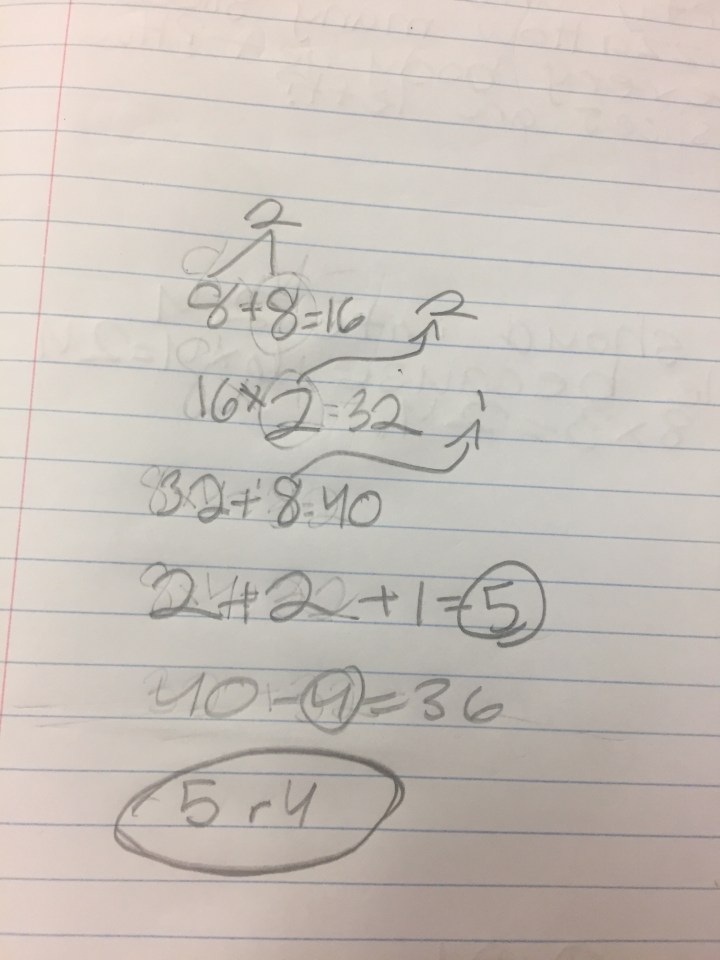 2
8+8=16 2
16×2=32 1
32+8=40
2+2+1=5
40-4=36
5 r4